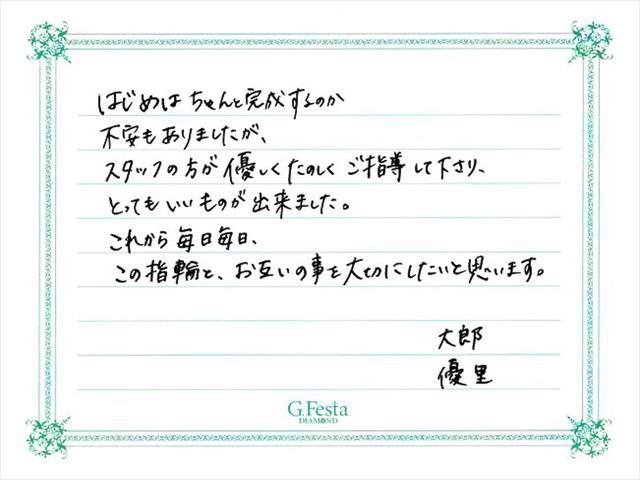 はじめは ちゃんと完成するのか
不安もありましたが、
スタッフの方が優しくたのしく ご指導して下さり、
とってもいいものが出来ました。
これから毎日毎日、
この指輪と、お互いの事を大切にしたいと思います。
大郎
優里
G.Festa
DIAMOND